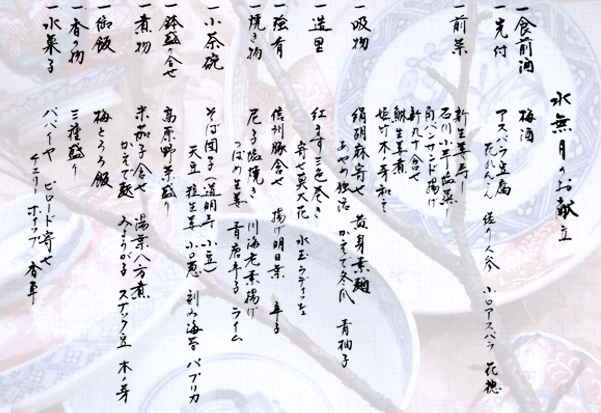 水無月のお献立
一食前酒 梅酒
一先付 アスパラ豆腐
花れんこん 造り人参 小口アスパラ 花穂
一前菜 新生姜寿し
石川小芋塩蒸し
肉パンサンド揚げ
新丸十含せ
鰊生姜煮
姫竹木ノ芽和え
一吸物 絹胡麻寄せ 黄身素麺
あやめ独活 かえで冬瓜 青柚子
一造里 紅ます三色巻き
寄せ莫大花 水玉ラディッシュ
一強肴 信州豚含せ 揚げ明日葉 辛子
一焼き物 尼子塩焼き 川海老素揚げ
つぼめ生姜 青唐辛子 ライム
一小茶碗 そば団子(道明寺 小豆)
天豆 柱生姜 小口葱 刻み海苔 パプリカ
一鉢盛り合せ 高原野菜盛り
一煮物 米茄子含せ 湯葉八方煮
かえで麩 みょうが子 スナック豆 木ノ芽
一御飯 梅とろろ飯
一香の物 三種盛り
一水菓子 パパイヤ ビロード寄せ
チェリー ホイップ 香草